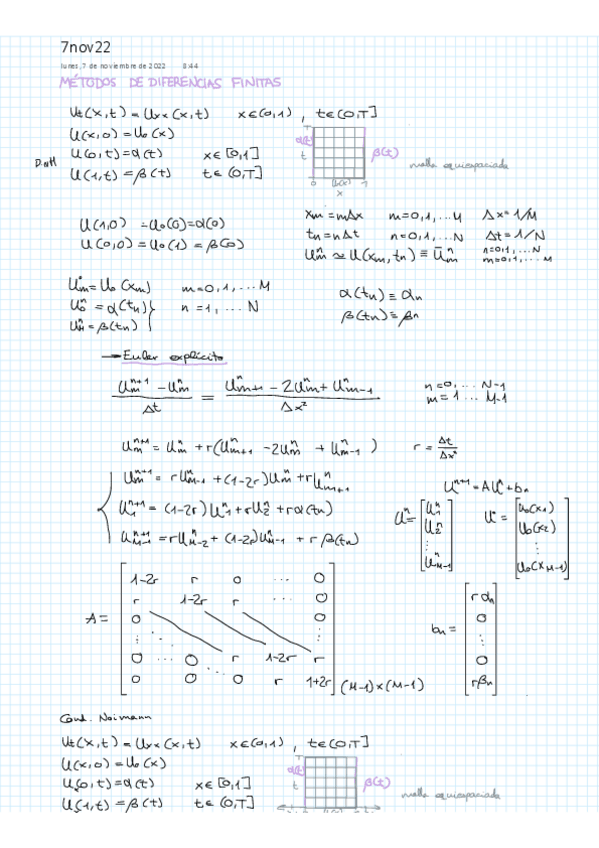 7nov22
lunes, 7 de noviembre de 2022 8:44
MÉTODOS DE DIFERENCIAS FINITAS
Ut(x,t) = Uxx(x,t) x∈(0,1) , t∈(0,T]
U(x,0) = U0(x)
U(0,t) = α(t) x∈[0,1]
U(1,t) = β(t) t∈(0,T]
T
α(t)
t
β(t)
0 1
x
malla equiespaciada
U(1,0) = U0(0) = α(0)
U(0,0) = U0(1) = β(0)
xm = mΔx m=0,1,...M Δx = 1/M
tn = nΔt n=0,1,...N Δt = 1/N
U^n_m ≃ U(xm,tn) ≡ Ū^n_m n=0,1,...N m=0,1,...M
U^0_m = U0(xm) m=0,1,...M
U^n_0 = α(tn) } n = 1, ... N
U^n_M = β(tn)
α(tn) ≡ αn
β(tn) ≡ βn
→ Euler explícito
(U^{n+1}_m − U^n_m) / Δt = (U^n_{m+1} − 2U^n_m + U^n_{m−1}) / Δx² n=0,... N−1 m=1 ... M−1
U^{n+1}_m = U^n_m + r(U^n_{m+1} − 2U^n_m + U^n_{m−1}) r = Δt/Δx²
U^{n+1}_m = rU^n_{m−1} + (1−2r)U^n_m + rU^n_{m+1}
U^{n+1}_1 = (1−2r)U^n_1 + rU^n_2 + rα(tn)
U^{n+1}_{M−1} = rU^n_{M−2} + (1−2r)U^n_{M−1} + rβ(tn)
U^{n+1} = AU^n + bn
U^n = [U^n_1 U^n_2 ⋮ U^n_{M−1}] U^0 = [U0(x1) U0(x2) ⋮ U0(xM−1)]
A =
1−2r r 0 ... 0
r 1−2r r ... 0
0 0
⋮ ⋱ ⋮
0 ... 0 r 1−2r r
0 0 0 r 1+2r (M−1)×(M−1)
bn = [rαn 0 ⋮ 0 rβn]
Cond. Noimann
Ut(x,t) = Uxx(x,t) x∈(0,1) , t∈(0,T]
U(x,0) = U0(x)
U(0,t) = α(t) x∈[0,1]
U(1,t) = β(t) t∈(0,T]
T
α(t)
t
β(t)
malla equiespaciada